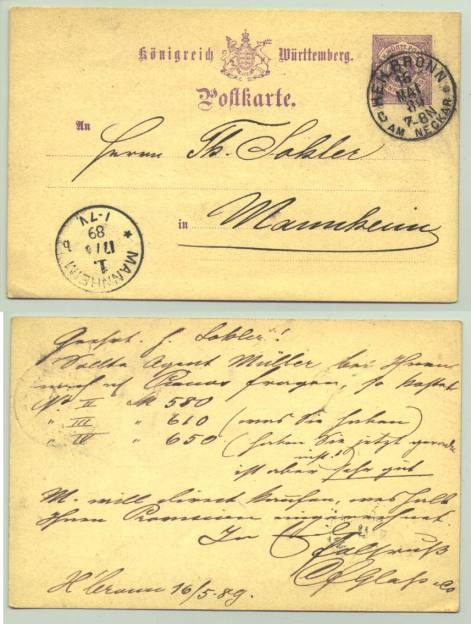 Königreich Württemberg.
Postkarte.
HEILBRONN
16
MAI
89
7-8N
AM NECKAR
An
Herrn Th. Sohler
in Mannheim
MANNHEIM
1.
89
1-7V.
Geehrt. H. Sohler!
Sollte Agent Müller bei Ihnen
nach Pianos fragen, so kostet
No. II M 580
" III " 610 (was Sie haben)
" IV " 650 (haben Sie jetzt gerade
nicht!)
ist aber sehr gut
M. will direct kaufen, weshalb
Ihnen Provision eingerechnet.
In
C. F. Glass & Co
H'bronn 16/5.89.